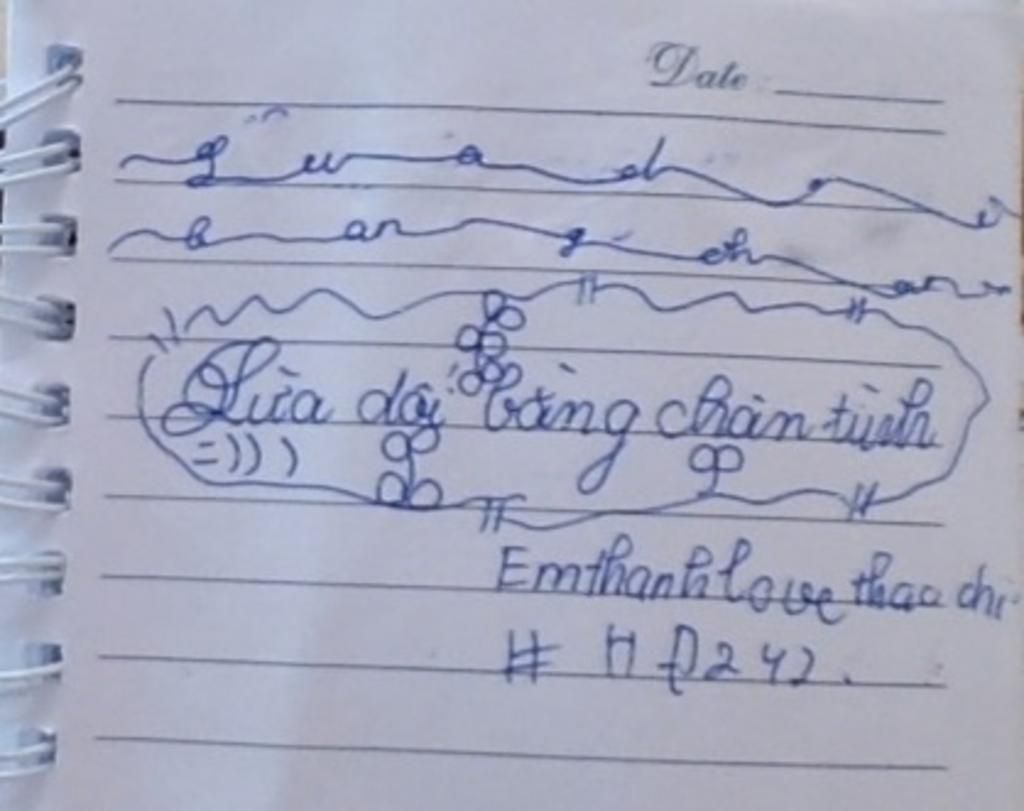 Date:
L ừ a d ố i
b ằ n g ch ân
Lừa dối bằng chân tình
=)))
Emthanh love thao chi
# HD242.